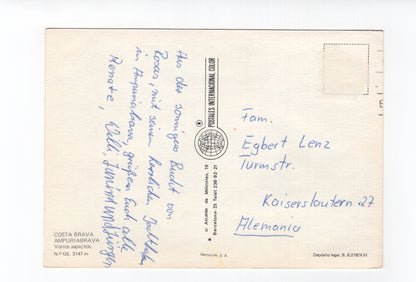 Aus der sonnigen Bucht von
Rosas, mit seinen herrlichen Jachthafen
in Ampuriabrava, grüßen Euch alle
Renate, Willi, und Jürgen
COSTA BRAVA
AMPURIABRAVA
Varios aspectos.
N.º GE. 3147 m
POSTALES INTERNACIONAL COLOR
c/ Alcalde de Móstoles, 19
Barcelona-25 Teléf. 236-92-21
Fam.
Egbert Lenz
Turmstr.
Kaiserslautern 27
Alemania
Depósito legal, B. 6.218/XXI